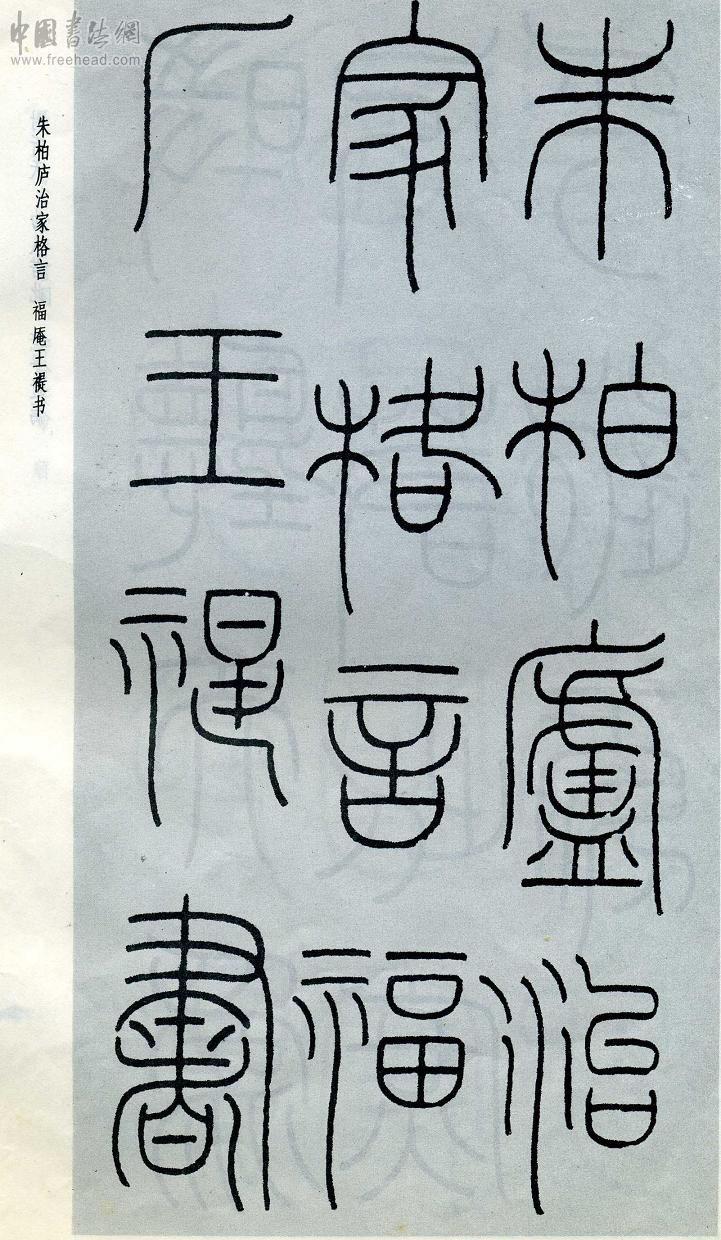 中國書法網
www.freehead.com
朱柏廬治
家格言福
厂王禔書
朱柏庐治家格言 福庵王禔书